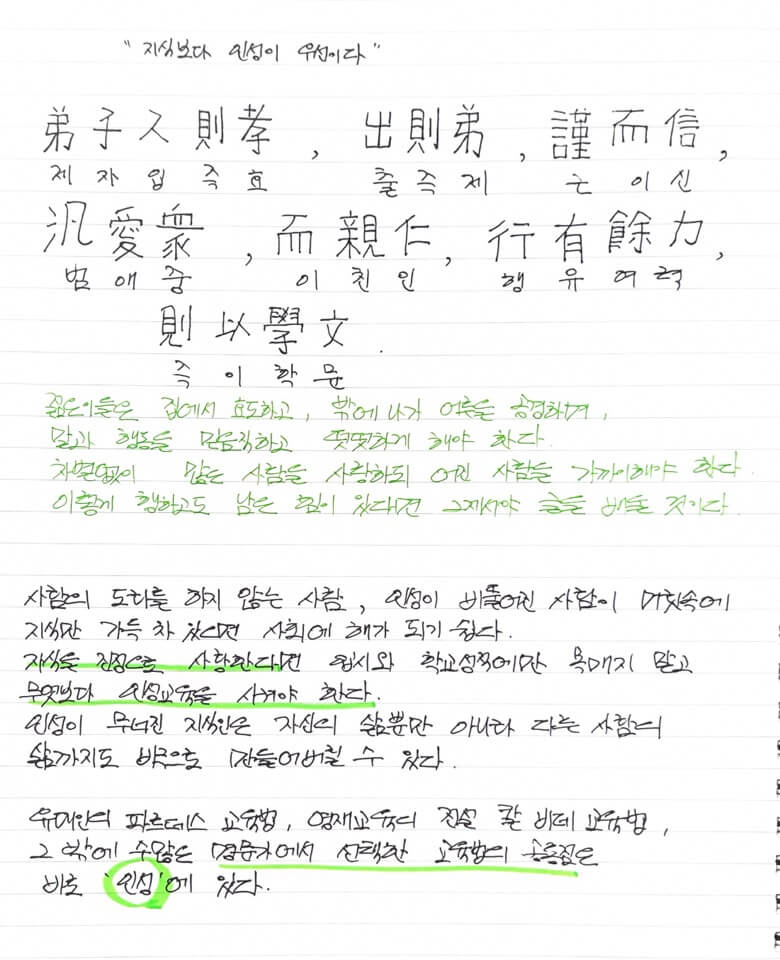 "지식보다 인성이 우선이다"
弟子入則孝, 出則弟, 謹而信,
제자입즉효 출즉제 근이신
汎愛衆, 而親仁, 行有餘力,
범애중 이친인 행유여력
則以學文.
즉이학문
젊은이들은 집에서 효도하고, 밖에나가 어른을 공경하며,
말과 행동을 믿음직하고 떳떳하게 해야 한다.
차별없이 많은 사람을 사랑하되 어진 사람을 가까이해야 한다.
이렇게 행하고도 남은 힘이 있다면 그제서야 글을 배울 것이다.
사람의 도리를 하지 않는 사람, 인성이 비뚤어진 사람이 머릿속에
지식만 가득 차 있으면 사회에 해가 되기 쉽다.
자식을 진정으로 사랑한다면 입시와 학교성적에만 목매지 말고
무엇보다 인성교육을 시켜야 한다.
인성이 무너진 지식인은 자신의 삶뿐만 아니라 다른 사람의
삶까지도 바꾸으로 만들어버릴 수 있다.
유대인의 파르데스 교육법, 영재교육의 전설 칼 비테 교육법,
그 밖에 수많은 명문가에서 선택한 교육법의 공통점은
바로 '인성'에 있다.